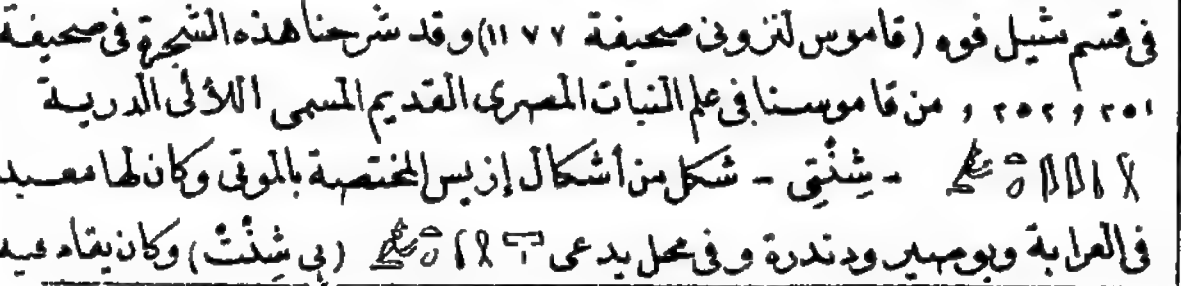 فى قسم شيل فوه (قاموس لنزونى صحيفة ١١٧٧) وقد شرحنا هذه الشجرة فى صحيفة
٢٥١ و ٢٥٢ و من قاموسنا فى علم النبات المصرى القديم المسمى اللآلئ الدرية
- شِنْتِى - شكل من أشكال إزيس المختصة بالموتى وكان لها معبد
فى العرابة وبوصير ودندرة وفى محل يدعى (بى شِنْتْ) وكان يقاد فيه